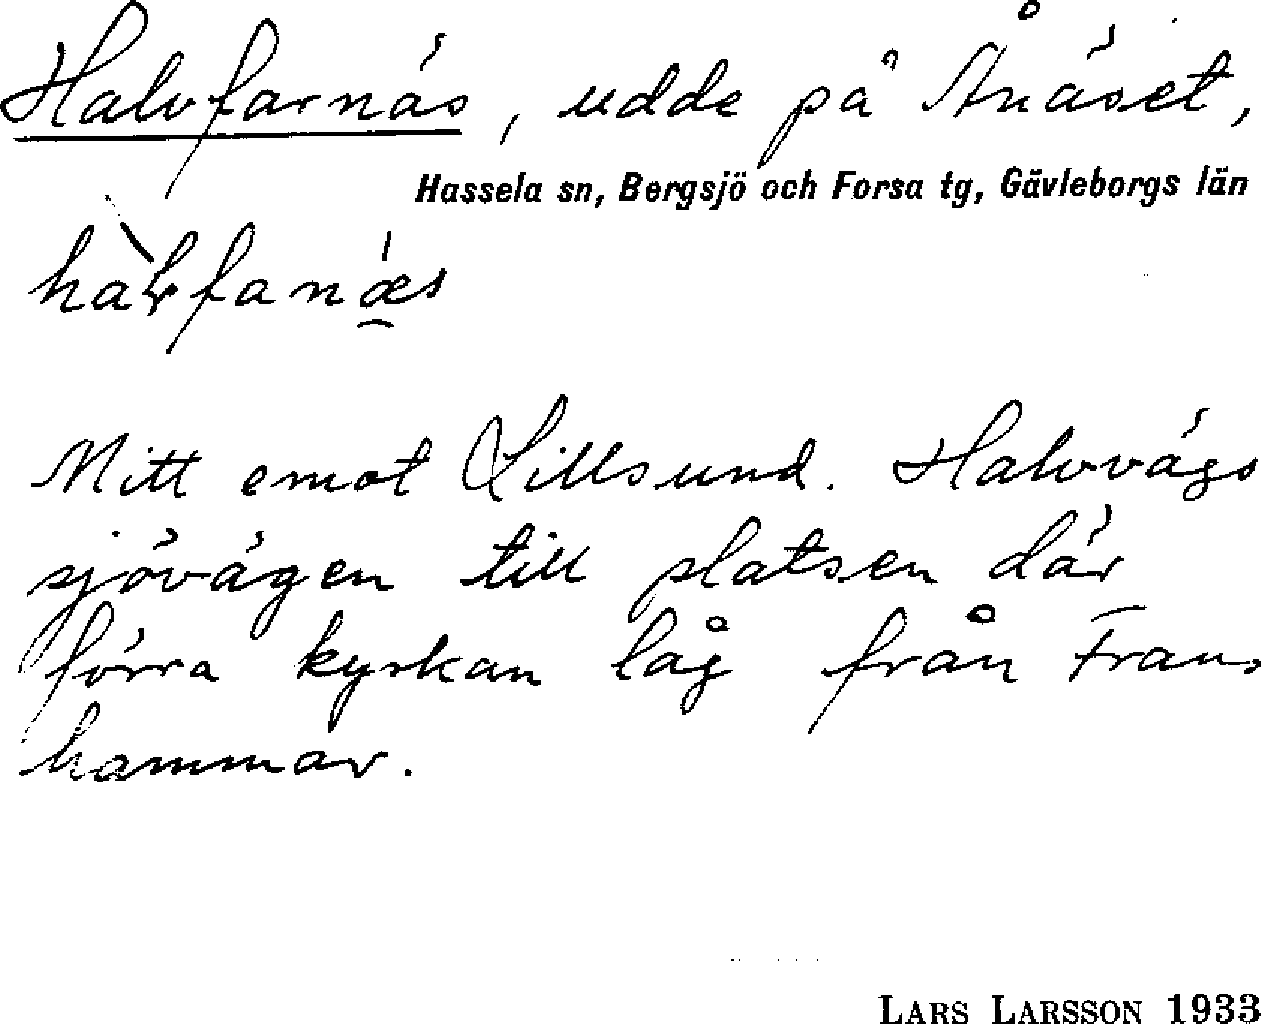 Halvfarnäs, udde på Ånäset,
Hassela sn, Bergsjö och Forsa tg, Gävleborgs län
Mitt emot Lillsund. Halvvägs
sjövägen till platsen där
förra kyrkan låg från Frans
hammar.
LARS LARSSON 1933